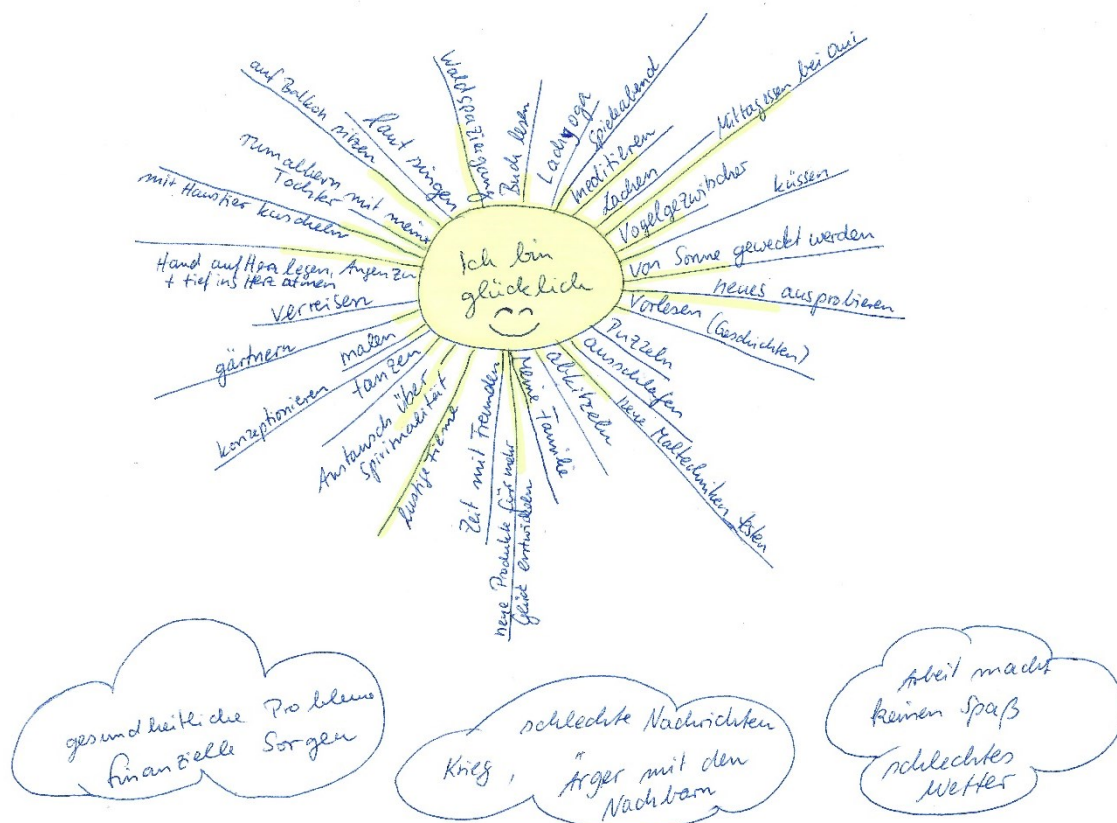 Ich bin
glücklich
Waldspaziergang
Buch lesen
Lachyoga
Spieleabend
meditieren
Lachen
Mittagessen bei Omi
Vogelgezwitscher
küssen
von Sonne geweckt werden
neues ausprobieren
Vorlesen (Geschichten)
Puzzeln
ausschlafen
neue Maltechniken testen
abkitzeln
Meine Familie
neue Produkte für mehr
Glück entwickeln
Zeit mit Freunden
Lustige Filme
Austausch über
Spiritualität
tanzen
konzeptionieren
malen
gärtnern
verreisen
Hand auf Herz legen, Augen zu
+ tief ins Herz atmen
mit Haustier kuscheln
rumalbern mit meiner
Tochter
auf Balkon sitzen
laut singen
gesundheitliche Probleme
finanzielle Sorgen
schlechte Nachrichten
Krieg,
Ärger mit den
Nachbarn
Arbeit macht
keinen Spaß
schlechtes
Wetter